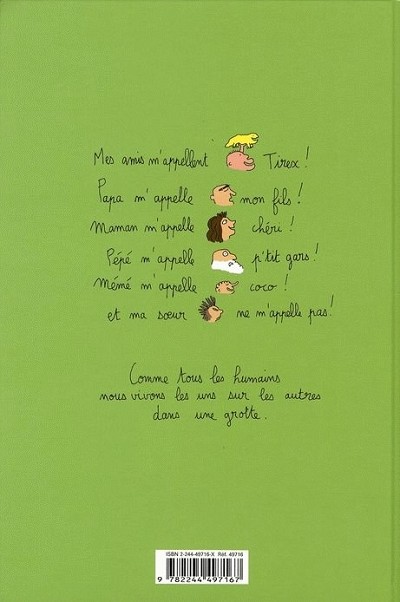 Mes amis m'appellent Tirex !
Papa m'appelle mon fils !
Maman m'appelle chéri !
Pépé m'appelle p'tit gars !
Mémé m'appelle coco !
et ma sœur ne m'appelle pas !
Comme tous les humains
nous vivons les uns sur les autres
dans une grotte.
ISBN 2-244-49716-X Réf. 49716
9 782244 497167